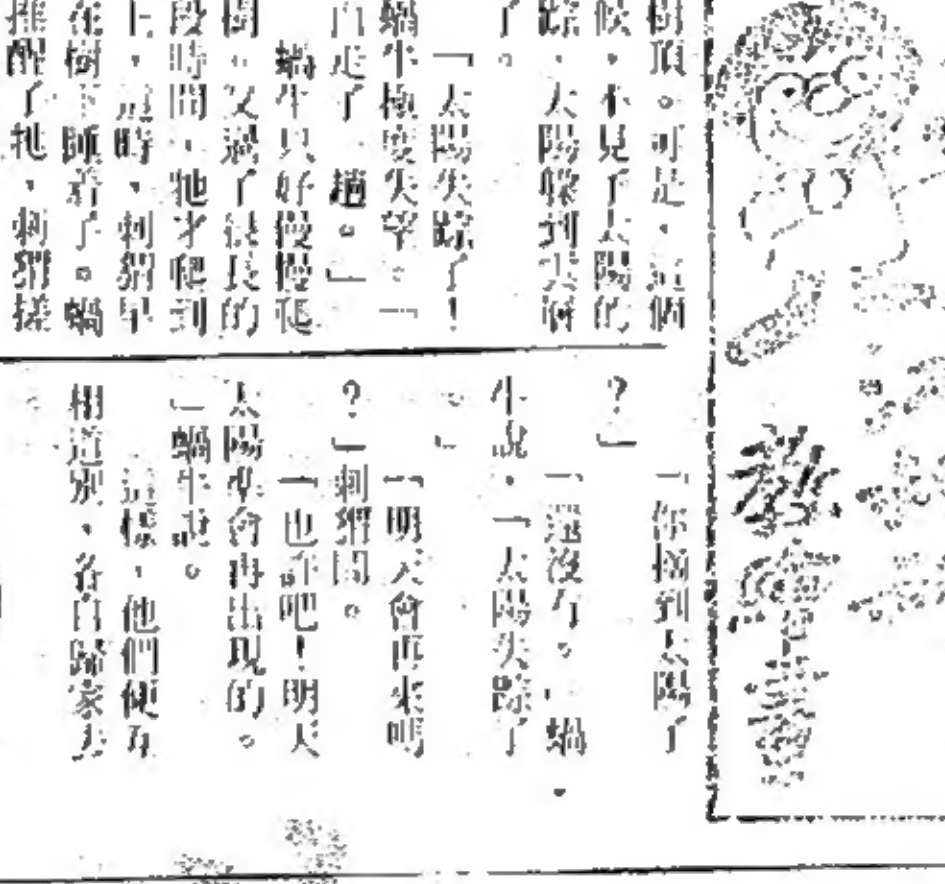 樹頂。可是，這個
候，不見了太陽的
踪，太陽躲到哪
了。
「太陽失踪了！
蝸牛極度失望。「
白走了一趟。」
蝸牛只好慢慢爬
樹。又過了很長的
段時間，牠才爬到
上，這時，刺猬早
在樹下睡着了。蝸
推醒了牠，刺猬搓
「你摘到太陽了
？」
「還沒有。」蝸
牛說，「太陽失踪了
。」
「明天會再來嗎
？」刺猬問。
「也許吧！明天
太陽準會再出現的。
」蝸牛說。
這樣，他們便互
相道別，各自歸家去
。